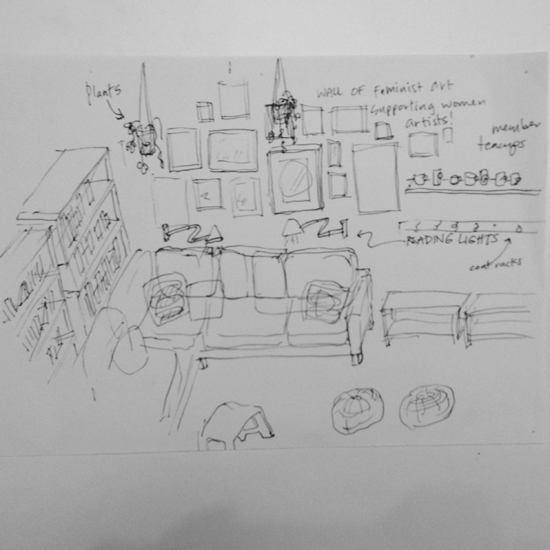 plants
WALL OF Feminist Art
Supporting women
artists!
member
teacups
READING LIGHTS
coat racks